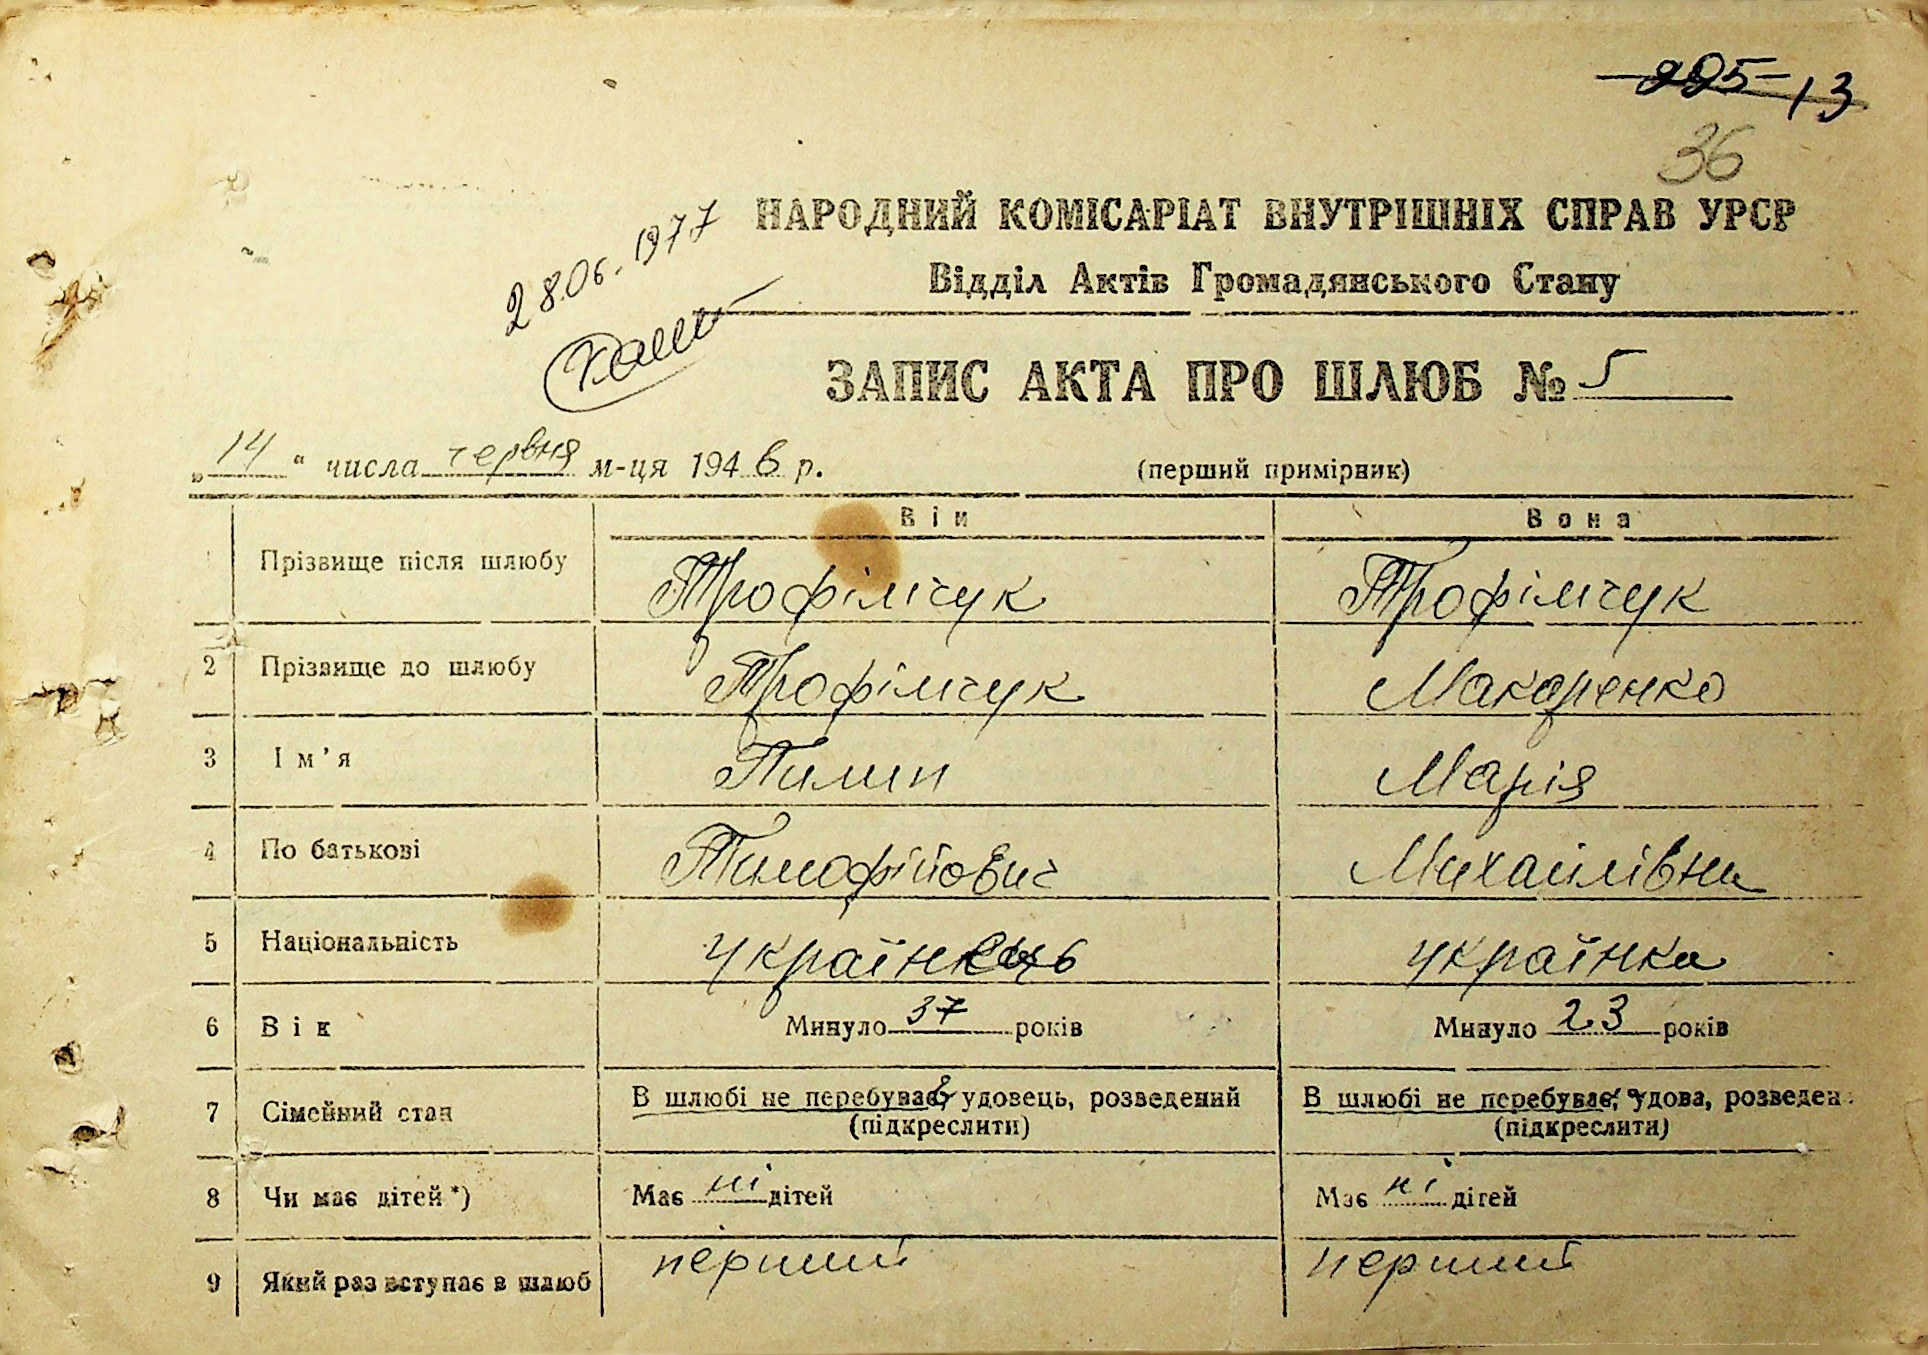 225 13
36
НАРОДНИЙ КОМІСАРІАТ ВНУТРІШНІХ СПРАВ УРСР
Відділ Актів Громадянського Стану
28.06.1977
ЗАПИС АКТА ПРО ШЛЮБ № 5
„14“ числа червня м-ця 1946 р. (перший примірник)
Він Вона
1 Прізвище після шлюбу Трофімчук Трофімчук
2 Прізвище до шлюбу Трофімчук Макаренко
3 Ім’я Пилип Марія
4 По батькові Тимофійович Михайлівни
5 Національність українець українка
6 Вік Минуло 37 років Минуло 23 років
7 Сімейний стан В шлюбі не перебуває, удовець, розведений В шлюбі не перебуває, удова, розведен
(підкреслити) (підкреслити)
8 Чи має дітей *) Має ні дітей Має ні дітей
9 Який раз вступає в шлюб перший перший